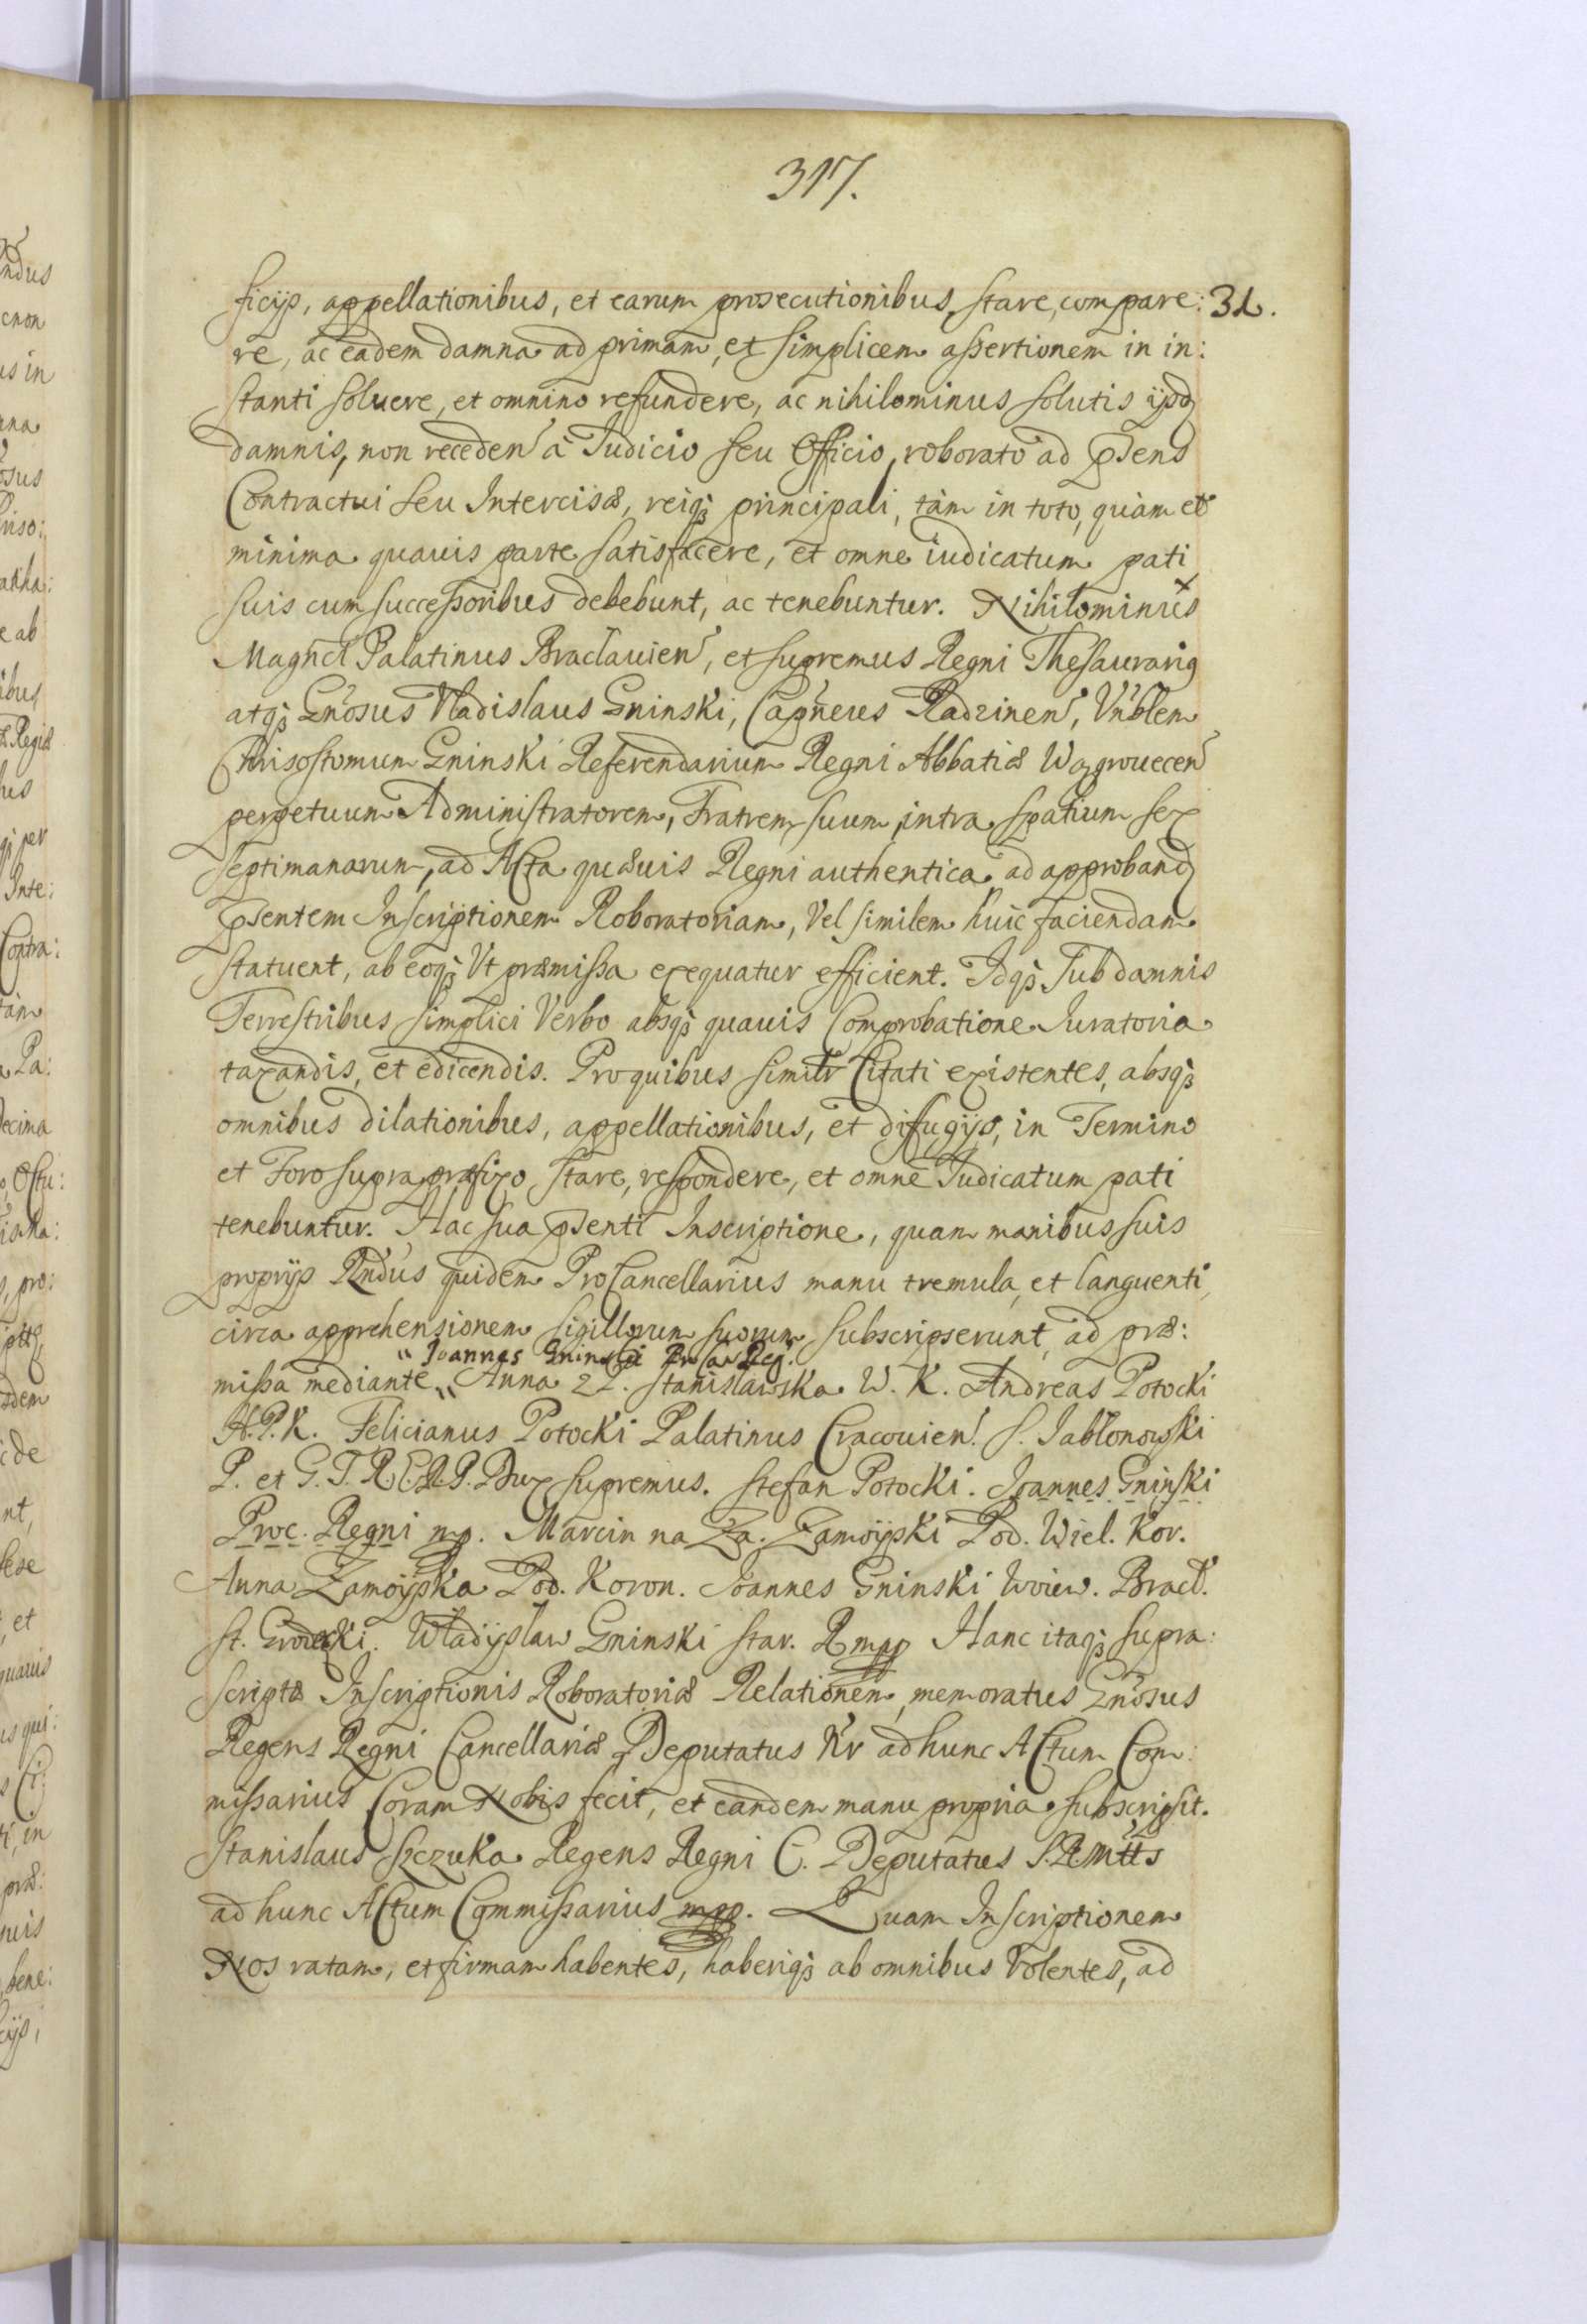 317.
ficijs, appellationibus, et earum prosecutionibus, stare, compare: 31.
re, ac eadem damna ad primam, et simplicem assertionem in in:
stanti soluere, et omnino refundere, ac nihilominus solutis ijsdẽ
damnis, non receden̄ à Iudicio seu Officio, roborato ad p̄sens
Contractui seu Intercisæ, reiq; principali, tàm in toto, quàm et
minima quauis parte satisfacere, et omne iudicatum pati
suis cum successoribus debebunt, ac tenebuntur. Nihilominus
Magn̄cī Palatinus Braclauien̄, et supremus Regni Thesaurariq
atq; Gn̄osus Vladislaus Gninski, Cap̄neus Radzinen̄, Vn̄blem
Chrisostomum Gninski Referendarium Regni Abbatiæ Wągrouecen̄
perpetuum Administratorem, Fratrem suum, intra spatium sex
septimanarum, ad Acta quæuis Regni authentica ad approband
p̄sentem Inscriptionem Roboratoriam, Vel similem huic faciendam
statuent, ab eoq; Vt præmissa exequatur efficient. Idq; Sub damnis
Terrestribus simplici Verbo absq; quauis Comprobatione Iuratoria
taxandis, et edicendis. Pro quibus similr̄ Citati existentes, absq;
omnibus dilationibus, appellationibus, et diffugijs, in Termino
et Foro supra præfixo stare, respondere, et omne Iudicatum pati
tenebuntur. Hac sua p̄senti Inscriptione, quam manibus suis
proprijs Rn̄dus quidem ProCancellarius manu tremula, et languenti,
circa apprehensionem sigillorum suorum subscripserunt, ad præ:
" Joannes Gninski ProCan Reg.
missa mediante „ Anna Z L. Stanisławska W. K. Andreas Potocki
H. P. K. Felicianus Potocki Palatinus Cracouien. S. Jabłonowski
P. et G. T. R. E. R. P. Dux supremus. Stefan Potocki. Joannes Gninski
Proc. Regni mp. Marcin na Za. Zamoijski Pod. Wiel. Kor.
Anna Zamoijska Pod. Koron. Joannes Gninski Woiew. Bracł.
st. Grodecki. Władysław Gninski star. R mpp Hanc itaq; supra:
scriptæ Inscriptionis Roboratoriæ Relationem, memoratus Gn̄osus
Regens Regni Cancellariæ Deputatus Nr̄ ad hunc Actum Com:
missarius Coram Nobis fecit, et eandem manu propria subscripsit.
Stanislaus Szczuka Regens Regni C. Deputatus S. R Mttis
ad hunc Actum Commissarius mpp. Quam Inscriptionem
Nos ratam, et firmam habentes, haberiq; ab omnibus Volentes, ad